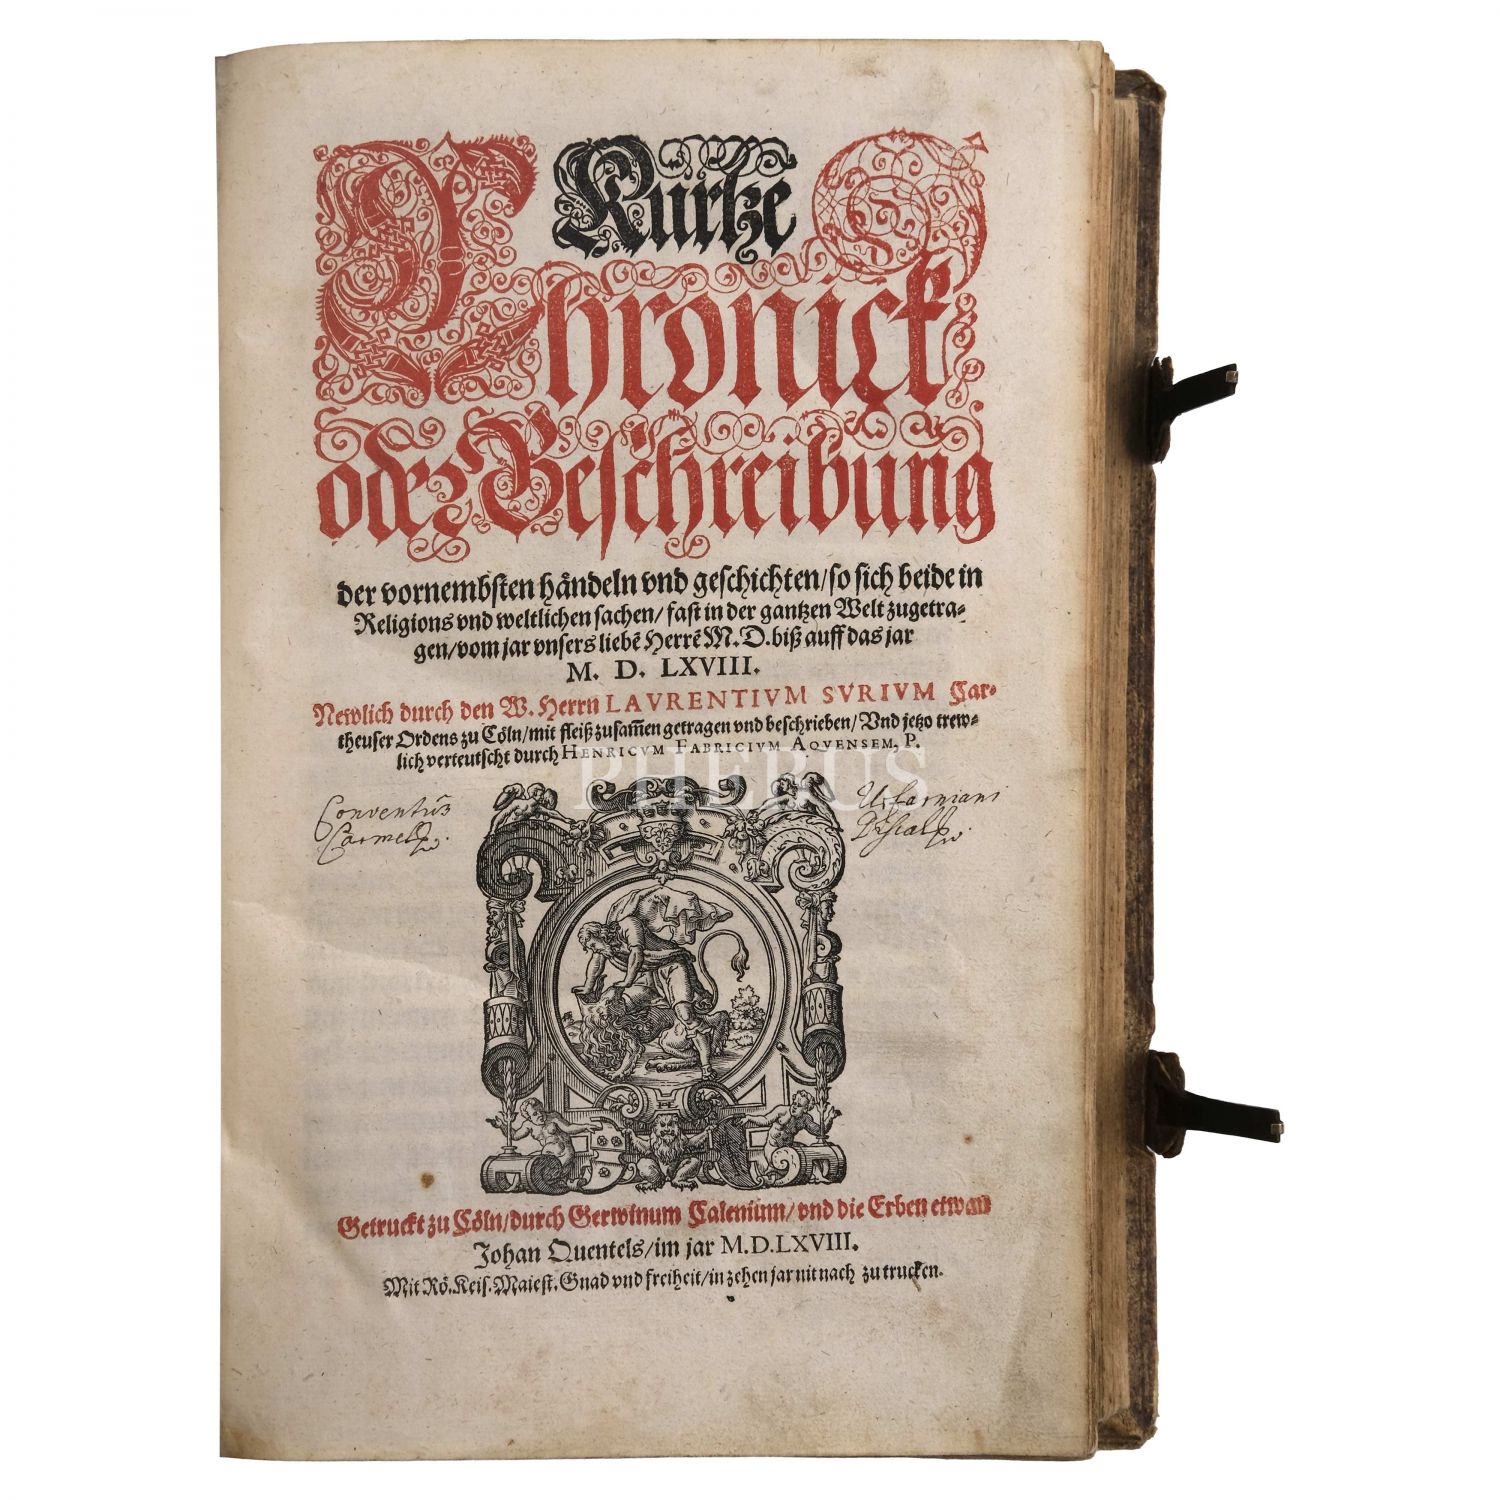 Kurtze
Chronick
oder Beschreibung
der vornembsten håndeln vnd geschichten/so sich beide in
Religions vnd weltlichen sachen/ fast in der gantzen Welt zugetra-
gen/vom jar vnsers liebẽ Herrẽ M. D. biß auff das jar
M. D. LXVIII.
Newlich durch den W. Herrn LAVRENTIVM SVRIVM Car-
theuser Ordens zu Cöln/mit fleiß zusam̃en getragen vnd beschrieben/ Vnd jetzo trew-
lich verteutscht durch HENRICVM FABRICIVM AQVENSEM. P.
PHERUS
Conventûs
Carmel
Getruckt zu Cöln/durch Gerwinum Calenium/ vnd die Erben etwan
Johan Quentels/im jar M.D.LXVIII.
Mit Rö. Keis. Maiest. Gnad vnd freiheit/in zehen jar nit nach zu trucken.